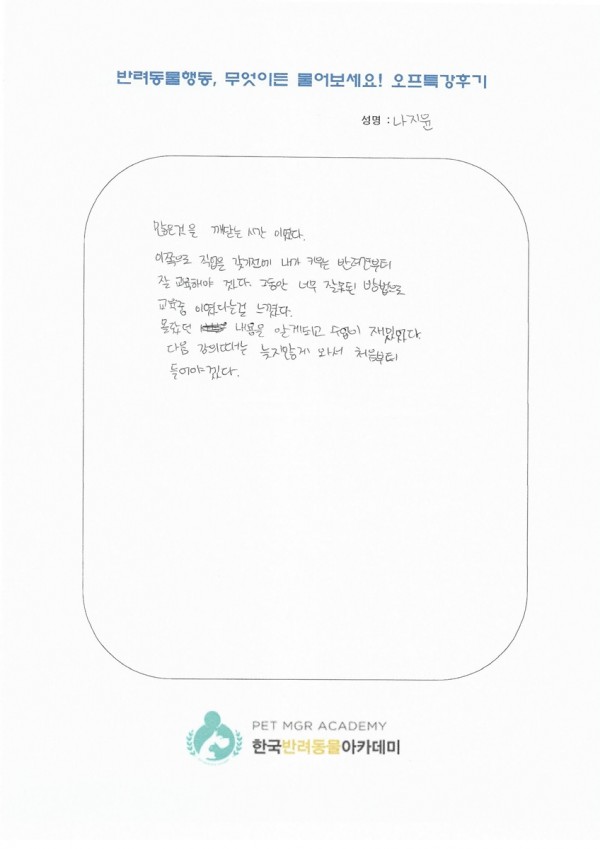 반려동물행동, 무엇이든 물어보세요! 오프특강후기
성명 : 나지윤
많은것을 깨닫는 시간 이였다.
이쪽으로 직업을 갖기전에 내가 키우는 반려견부터
잘 교육해야 겠다. 그동안 너무 잘못된 방법으로
교육중 이였다는걸 느꼈다.
몰랐던 내용을 알게되고 수업이 재밌었다
다음 강의때는 늦지않게 와서 처음부터
들어야겠다.
PET MGR ACADEMY
한국반려동물아카데미